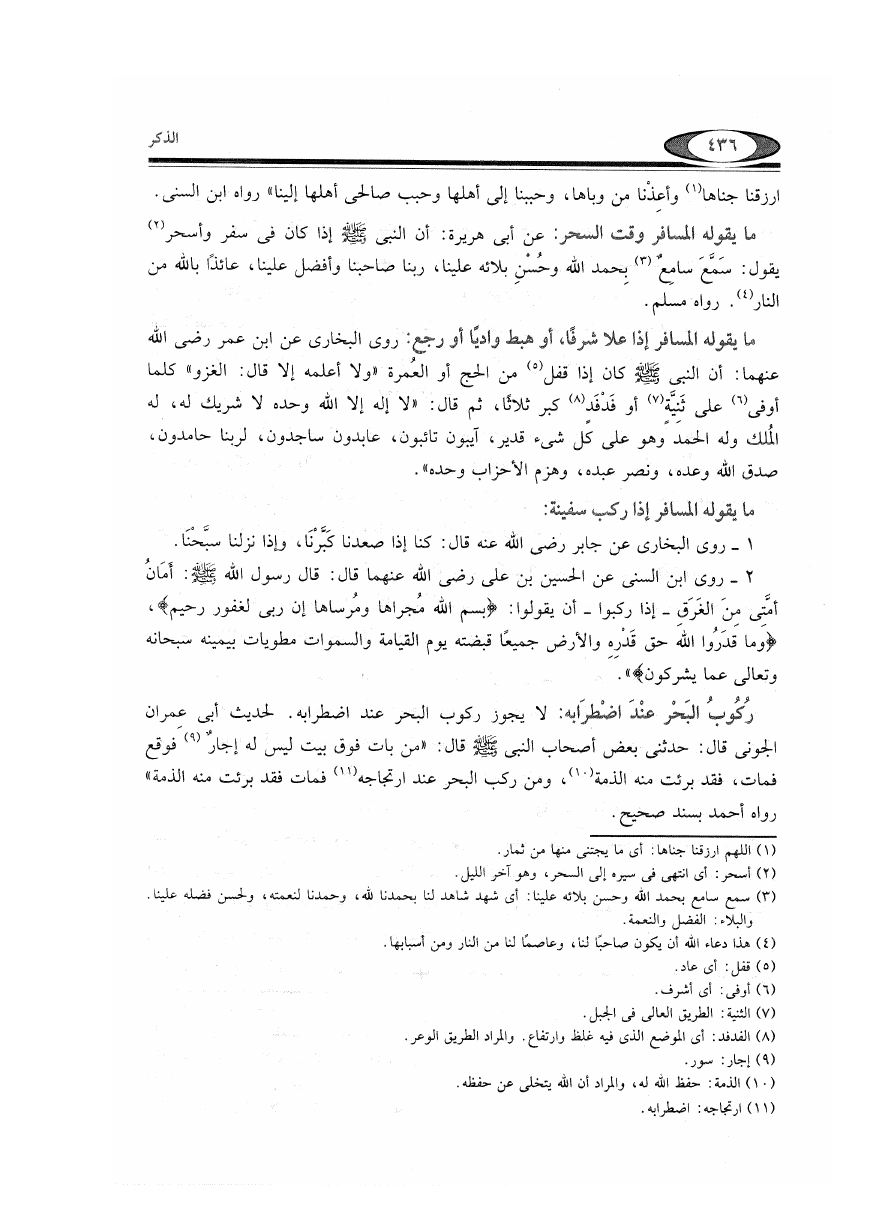 الذكر
٤٣٦
ارزقنا جناها(١) وأعِذْنا من وباها، وحببنا إلى أهلها وحبب صالحى أهلها إلينا» رواه ابن السنى.
ما يقوله المسافر وقت السحر: عن أبى هريرة: أن النبى ﷺ إذا كان فى سفر وأسحر(٢)
يقول: سَمَّعَ سامِعٌ(٣) بِحمد الله وحُسْنِ بلائه علينا، ربنا صاحبنا وأفضل علينا، عائذًا بالله من
النار(٤). رواه مسلم.
ما يقوله المسافر إذا علا شرفًا، أو هبط واديًا أو رجع: روى البخارى عن ابن عمر رضى الله
عنهما: أن النبى ﷺ كان إذا قفل(٥) من الحج أو العُمرة «ولا أعلمه إلا قال: الغزو» كلما
أوفى(٦) على ثَنِيَّةٍ(٧) أو فَدْفَدٍ(٨) كبر ثلاثًا، ثم قال: «لا إله إلا الله وحده لا شريك له، له
المُلك وله الحمد وهو على كل شىء قدير، آيبون تائبون، عابدون ساجدون، لربنا حامدون،
صدق الله وعده، ونصر عبده، وهزم الأحزاب وحده».
ما يقوله المسافر إذا ركب سفينة:
١ ـ روى البخارى عن جابر رضى الله عنه قال: كنا إذا صعدنا كَبَّرْنَا، وإذا نزلنا سبَّحْنَا.
٢ ـ روى ابن السنى عن الحسين بن على رضى الله عنهما قال: قال رسول الله ﷺ: أَمَانُ
أمَّتِى مِنَ الغَرَقِ ـ إذا ركبوا ـ أن يقولوا: ﴿بسم الله مُجراها ومُرساها إن ربى لغفور رحيم﴾،
﴿وما قدَرُوا الله حق قَدْرِهِ والأرض جميعًا قبضته يوم القيامة والسموات مطويات بيمينه سبحانه
وتعالى عما يشركون﴾».
رُكُوبُ البَحْر عِنْدَ اضْطِرَابه: لا يجوز ركوب البحر عند اضطرابه. لحديث أبى عِمران
الجونى قال: حدثنى بعض أصحاب النبى ﷺ قال: «من بات فوق بيت ليس له إجارٌ(٩) فوقع
فمات، فقد برئت منه الذمة(١٠)، ومن ركب البحر عند ارتجاجه(١١) فمات فقد برئت منه الذمة»
رواه أحمد بسند صحيح.
(١) اللهم ارزقنا جناها: أى ما يجتنى منها من ثمار.
(٢) أسحر: أى انتهى فى سيره إلى السحر، وهو آخر الليل.
(٣) سمع سامع بحمد الله وحسن بلائه علينا: أى شهد شاهد لنا بحمدنا لله، وحمدنا لنعمته، ولحسن فضله علينا.
والبلاء: الفضل والنعمة.
(٤) هذا دعاء الله أن يكون صاحبًا لنا، وعاصمًا لنا من النار ومن أسبابها.
(٥) قفل: أى عاد.
(٦) أوفى: أى أشرف.
(٧) الثنية: الطريق العالى فى الجبل.
(٨) الفدفد: أى الموضع الذى فيه غلظ وارتفاع. والمراد الطريق الوعر.
(٩) إجار: سور.
(١٠) الذمة: حفظ الله له، والمراد أن الله يتخلى عن حفظه.
(١١) ارتجاجه: اضطرابه.